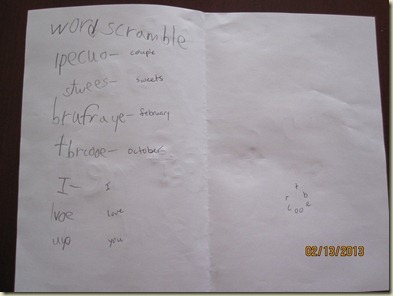 word scramble
lpecuo- couple
stwees- sweets
brufraye- february
tbrcooe- october
I- I
lvoe love
uyo you
02/13/2013